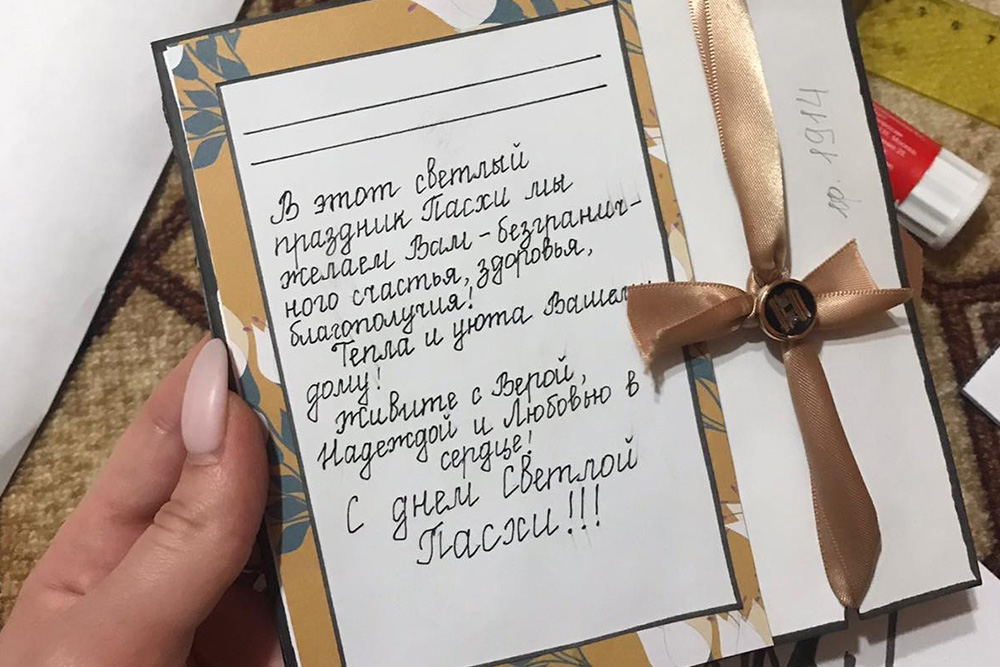 В этот светлый
праздник Пасхи мы
желаем Вам - безгранич-
ного счастья, здоровья,
благополучия!
Тепла и уюта Вашему
дому!
Живите с Верой,
Надеждой и Любовью в
сердце!
С днем Светлой
Пасхи!!!